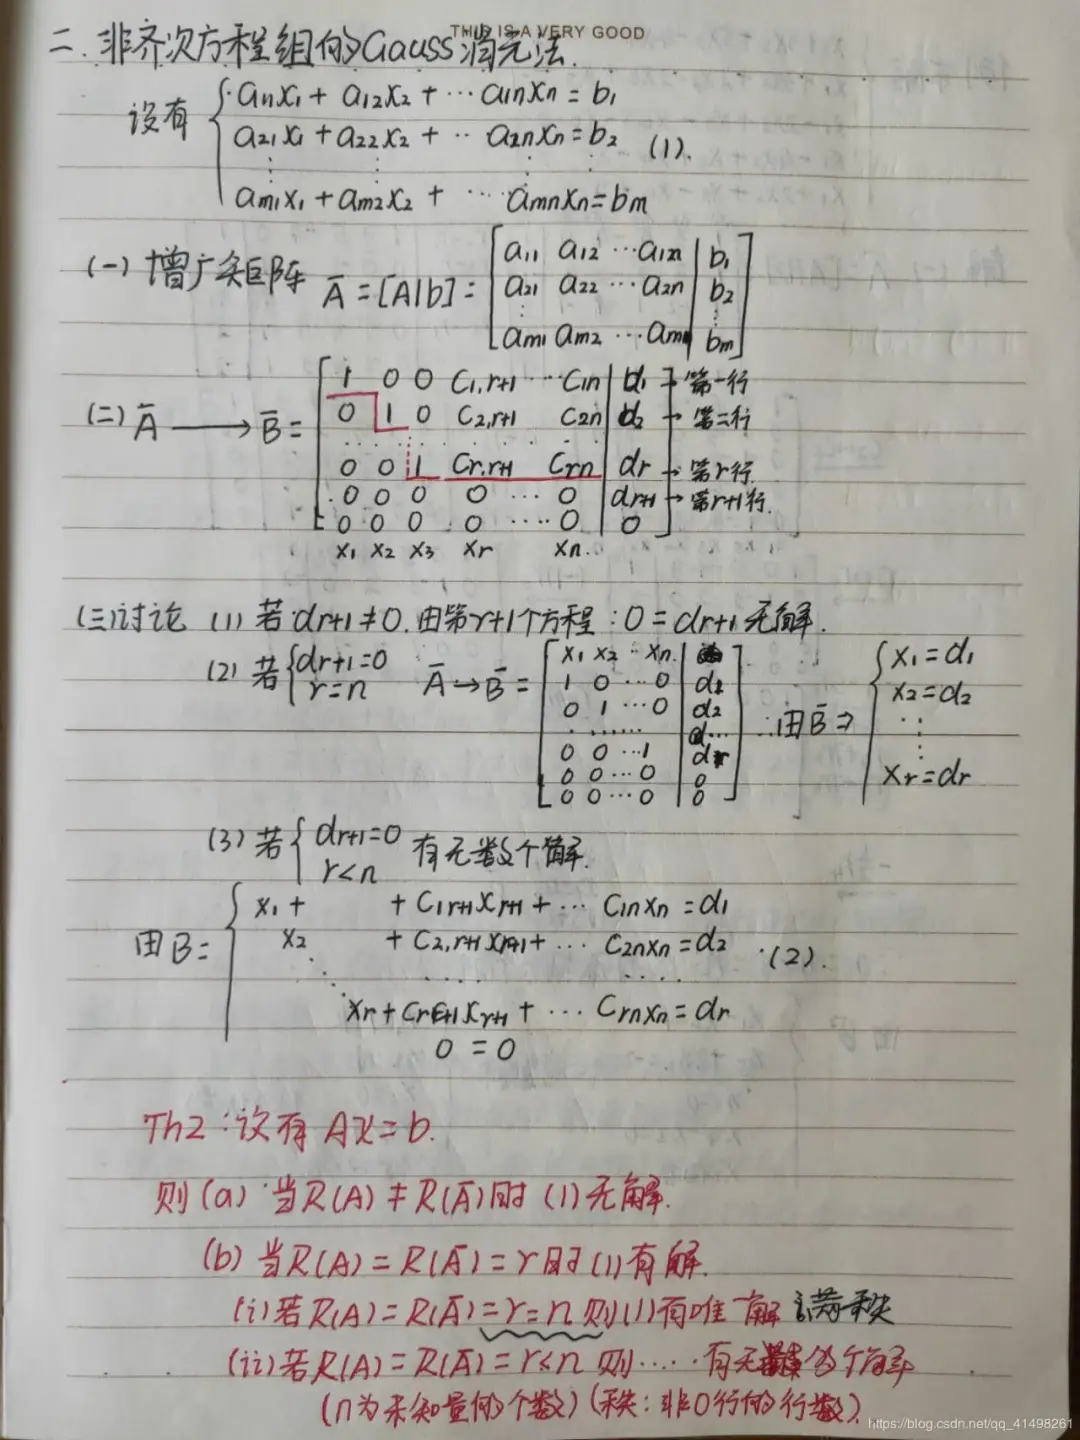 THIS IS A VERY GOOD
二.非齐次方程组的Gauss消元法.
设有 { a11x1 + a12x2 + ··· a1nxn = b1
a21x1 + a22x2 + ·· a2nxn = b2 (1).
⋮ ⋮ ⋮ ⋮
am1x1 + am2x2 + ··· amnxn = bm
(一) 增广矩阵 Ā = [A|b] = [ a11 a12 ··· a1n | b1
a21 a22 ··· a2n | b2
⋮ ⋮
am1 am2 ··· amn | bm ]
(二) Ā → B̄ = [ 1 0 0 C1,r+1 ··· C1n | d1 → 第一行
0 1 0 C2,r+1 C2n | d2 → 第二行
············
0 0 1 Cr,r+1 Crn | dr → 第r行
0 0 0 0 ··· 0 | dr+1 → 第r+1行.
0 0 0 0 ···· 0 | 0 ]
x1 x2 x3 xr xn.
(三)讨论 (1) 若 dr+1 ≠ 0. 由第r+1个方程: 0 = dr+1 无解.
(2) 若 { dr+1=0 r=n Ā → B̄ = [ x1 x2 ·· xn.
1 0 ··· 0 | d1
0 1 ··· 0 | d2
······ | d···
0 0 ··· 1 | dr
0 0 ··· 0 | 0
0 0 ··· 0 | 0 ]
∴由B̄ ⇒ { x1 = d1
x2 = d2
⋮
xr = dr
(3) 若 { dr+1=0 r<n 有无数个解.
由B = { x1 + + C1r+1xr+1 + ··· C1nxn = d1
x2 + C2,r+1xr+1 + ··· C2nxn = d2 ·(2).
⋱ ···· ····
xr + Crr+1xr+1 + ··· Crnxn = dr
0 = 0
Th2: 设有 Ax = b.
则 (a) 当R(A) ≠ R(Ā)时 (1)无解.
(b) 当R(A) = R(Ā) = r时(1)有解.
(i) 若R(A) = R(Ā) = r = n 则(1)有唯一解 满秩
(ii) 若R(A) = R(Ā) = r<n 则····· 有无 个解
(n为未知量的个数) (秩: 非0行的行数).
https://blog.csdn.net/qq_41498261